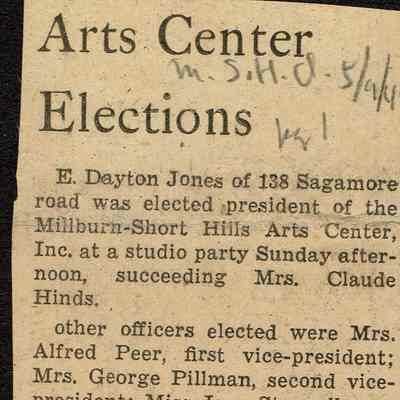 Arts Center
m.S.H.d. 5/9/4
Elections
pg 1
E. Dayton Jones of 138 Sagamore
road was elected president of the
Millburn-Short Hills Arts Center,
Inc. at a studio party Sunday after-
noon, succeeding Mrs. Claude
Hinds.
other officers elected were Mrs.
Alfred Peer, first vice-president;
Mrs. George Pillman, second vice-
president; Miss